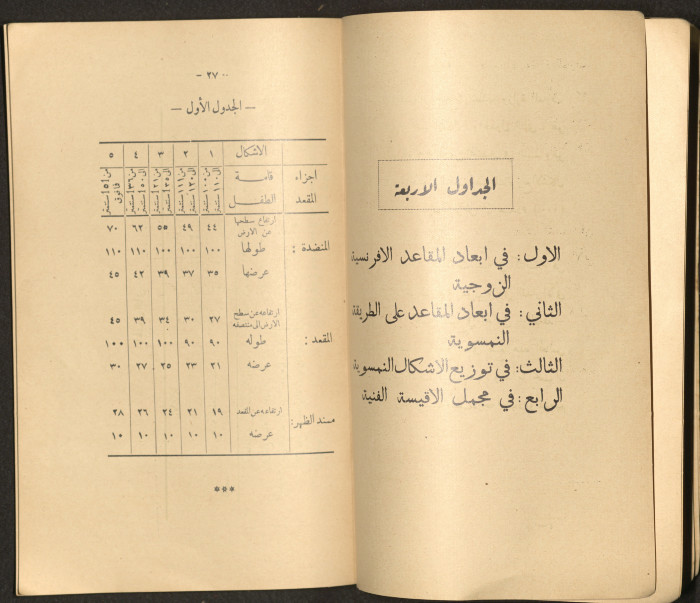 الجداول الاربعة
الاول: في ابعاد المقاعد الافرنسية
الزوجية
الثاني: في ابعاد المقاعد على الطريقة
النمسوية
الثالث: في توزيع الاشكال النمسوية
الرابع: في مجمل الاقيسة الفنية
— ٢٧ —
— الجدول الأول —
الاشكال ١ ٢ ٣ ٤ ٥
اجزاء قامة من ١٠٠ من ١١١ من ١٣٦ من ١٥١
المقعد الطفل الى ١١٠ سنتمتر سنتمتر سنتمتر الى ١٥٠ سنتمتر فما فوق
ارتفاع سطحها
عن الارض ٤٤ ٤٩ ٥٥ ٦٢ ٧٠
المنضدة: طولها ١٠٠ ١٠٠ ١٠٠ ١١٠ ١١٠
عرضها ٣٥ ٣٧ ٣٩ ٤٢ ٤٥
ارتفاعه عن سطح
الارض الى منتصفه ٢٧ ٣٠ ٣٤ ٣٩ ٤٥
المقعد: طوله ٩٠ ٩٠ ١٠٠ ١٠٠ ١٠٠
عرضه ٢١ ٢٣ ٢٥ ٢٧ ٣٠
مسند الظهر: ارتفاعه عن المقعد ١٩ ٢١ ٢٤ ٢٦ ٢٨
عرضه ١٠ ١٠ ١٠ ١٠ ١٠
***